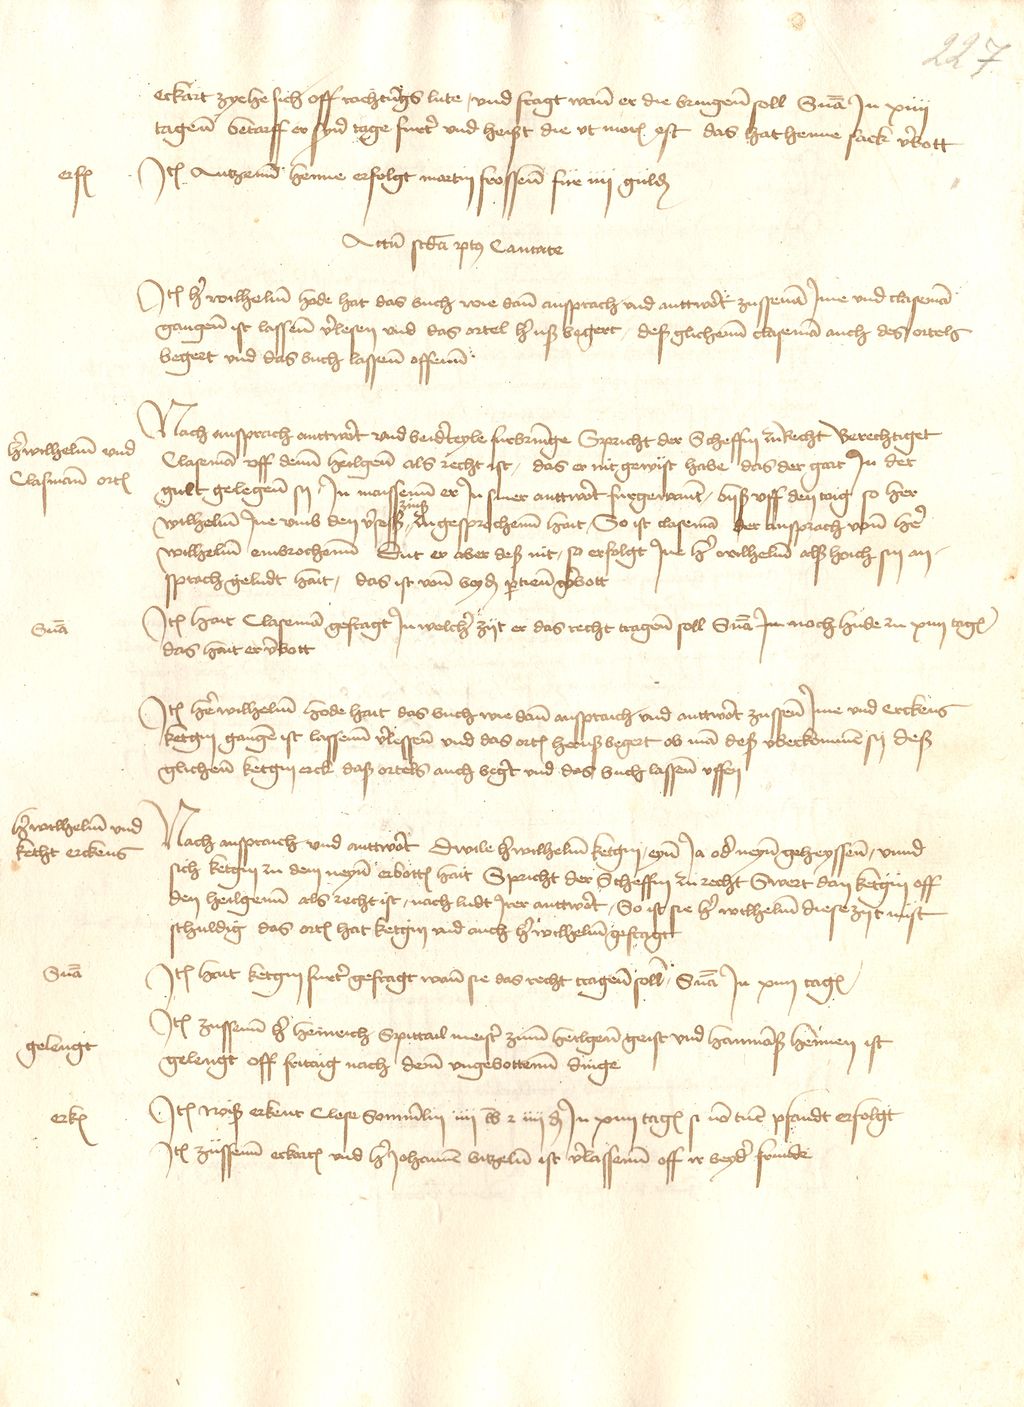 227
eckart zyehe sich off rachtu͂gs lute, und fragt wan͂ er die bringen͂ soll Sn͂a In xiiii
tagen͂ bedarff er syn͂ tage furt͛ und heist die ut mor͛ est das hat henne v͛bott
erf͛ It͛ Anthen͂ henne erfolgt martin frossen͂ fur iiii guld͛
Actu͂ scd͂a p͛t͛ Cantate
It͛ h͛ wilhelm͂ hode hat das buch wie dan͂ ansprach und anttw͛t zussen͂ Ime und clasema͂
gangen͂ ist lassen͂ v͛lesen und das ortel h͛uß begert, deß glichen͂ clasema͂ auch des ortels
begert und das buch lassen͂ offenn͂
h͛ wilhelm͂ und
Clasman͂ ort͛
Nach ansprach anttw͛t und beid͛teyle furbringe Spricht der Scheffin zu͛ recht Berechtiget
Clasema͂ uff denn͂ heilgen͂ als recht ist, das er nit gewist habe das der gart In der
gult gelegen͂ sij, In maissenn͂ er In siner anttw͛t furgewant͂, biß uff den tag so her
wilhelm͂ Ine umb den v͛seß zinß angesprochenn͂ hait, So ist clasema͂ der ansprach von͂ he͛
wilhelm͂ embrochenn͂ Dut er aber deß nit, so erfolgt Ine h͛ wilhelm͂ alß hoich sin an-
sprach geludt hait, das ist von͂ beyd͛ p͛tien͂ v͛bott
Sn͂a It͛ hait Clasema͂ gefragt In welch͛ zijt er das recht tragen͂ soll Sn͂a In noch hude zu xiiii tag͛
das hait er v͛bott
It͛ he͛ wilhelm͂ hode hait das buch wie dan͂ ansprach und anttw͛t zussen͂ Ime und Erckens
ketgin gangen͂ ist lassenn͂ v͛lessen͂ und das ort͛ heruß begert ob ma͂ deß uberkommen sij deß
glichen͂ ketgin erck͛ daß ortels auch beg͛t und das buch lassen͂ uffen
h͛ wilhelm͂ und
ketht erckens
Nach ansprach und anttw͛t Dwile h͛ wilhelm͂ ketgin, eyn͂ Ja od͛ neyn͂ geheyssen͂, unnd
sich ketgin zu dem neyn͂ erbott͛ hait Spricht der Scheffin zu͛ recht Swert dan ketgin off
den heilgenn͂ als recht ist, nach ludt Irer anttw͛t, So ist sie h͛ wilhelm͂ diese zijt nust
schuldig das ort͛ hat ketgin und auch h͛ wilhelm͂ gefragt
Sn͂a It͛ hait ketgin furt͛ gefragt wan͂ sie das recht tragen͂ soll, Sn͂a In xiiii tag͛
gelengt It͛ zussenn͂ h͛ heinrich Spittail meist͛ zum͂ heilgen͂ geist und hanma͂ß hennen ist
gelengt off fritaig nach dem͂ ungebottenn͂ dinge
erk͛ It͛ Noiß erkent Clese Sommerlin iiii lb 2 iiii d͛ In xiiii tag͛ si no͂ tu͂c pfandt erfolgt
It͛ zussenn͂ eckart͛ und h͛ Johannes͂ bitzeln͂ ist v͛lassenn͂ off ir beyd͛ frunde